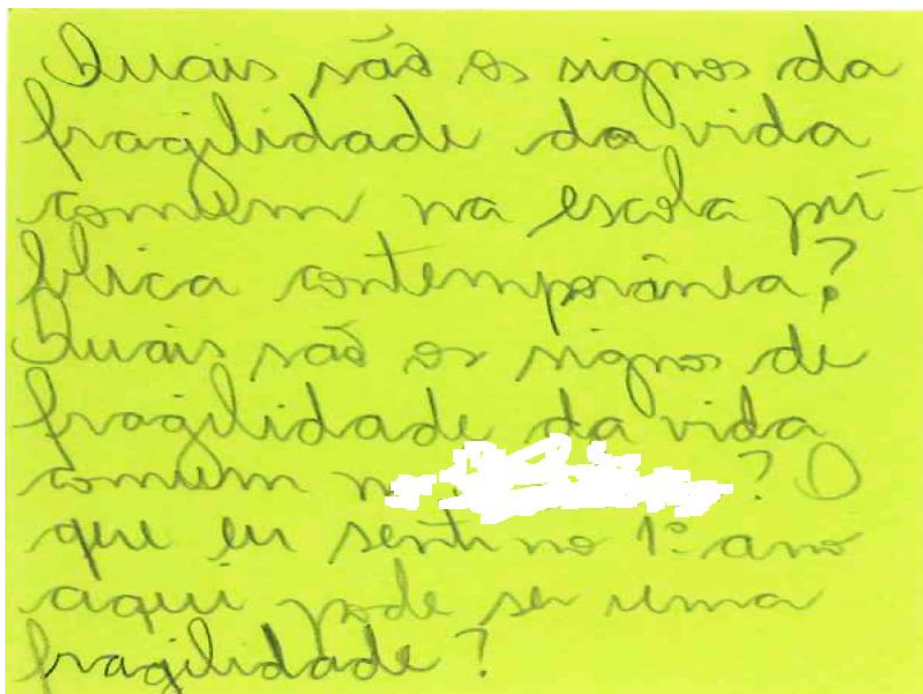 Quais são os signos da
fragilidade da vida
comum na escola pú-
blica contemporânea?
Quais são os signos de
fragilidade da vida
comum ? O
que eu senti no 1º ano
aqui pode ser uma
fragilidade?